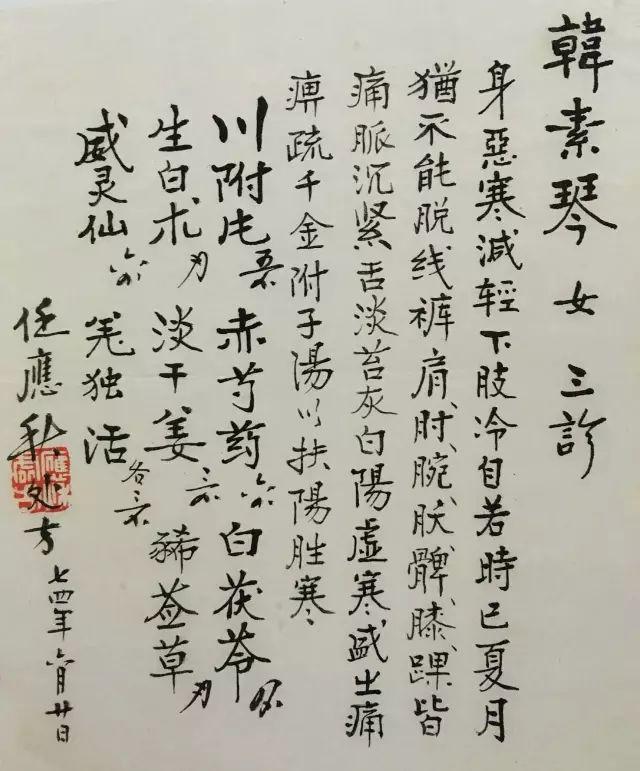 韓素琴 女 三診
身惡寒减轻下肢冷自若時已夏月
猶不能脱线裤肩、肘、腕、胅、髀、膝、踝、皆
痛脈沉紧舌淡苔灰白陽虚寒盛之痛
痹疏千金附子湯以扶陽胜寒
川附片 赤芍药 白茯苓
生白术 淡干姜 豨莶草
威灵仙 羌独活 各
任應秋处方 七四年六月廿日